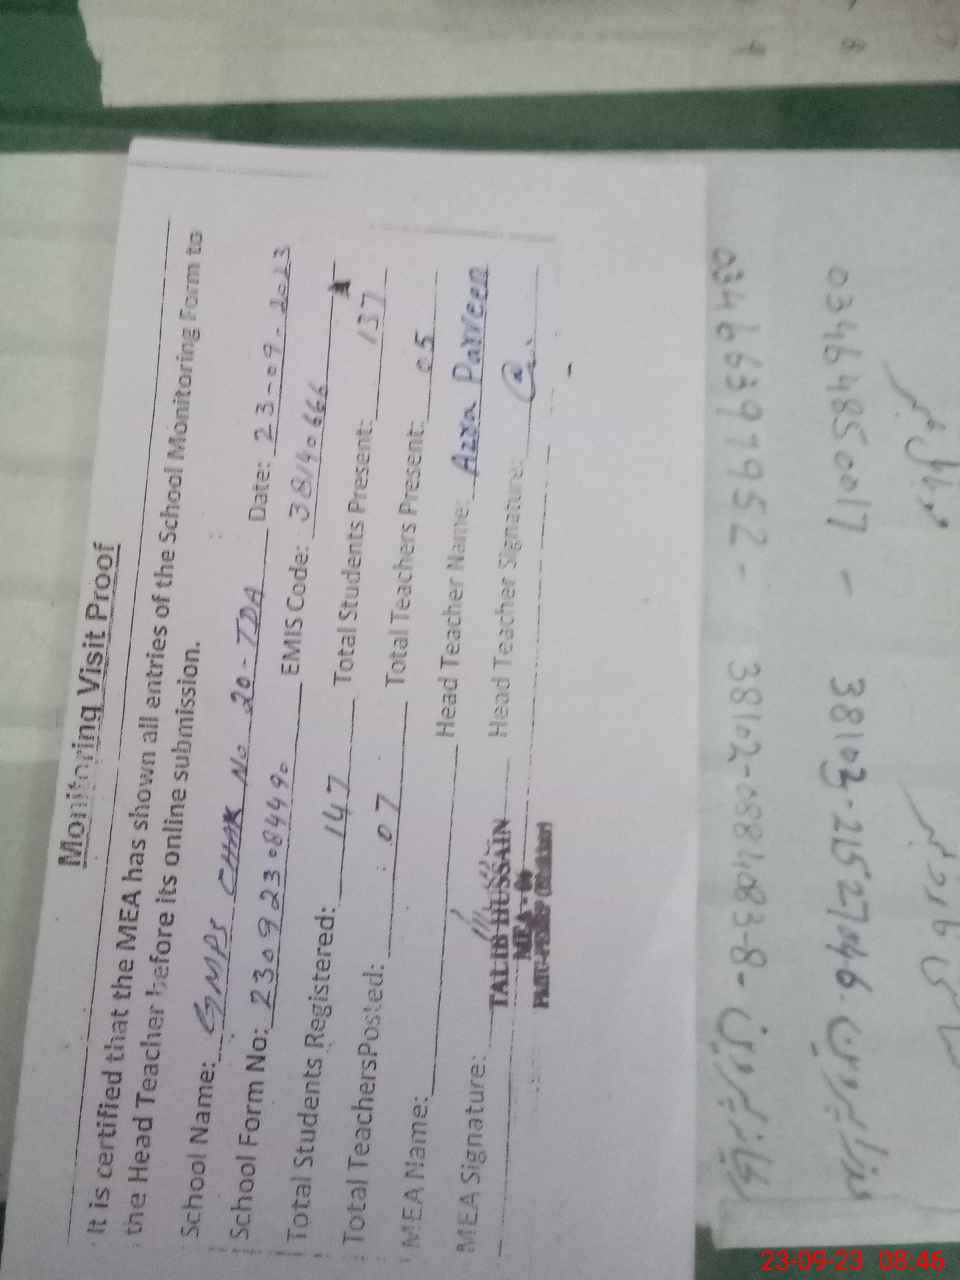 Monitoring Visit Proof
It is certified that the MEA has shown all entries of the School Monitoring Form to
the Head Teacher before its online submission.
School Name: GMPS CHAK No 20-TDA Date: 23-09-2023
School Form No: 23092308449० EMIS Code: 3814०666
Total Students Registered: 147 Total Students Present: 137
Total TeachersPosted: 07 Total Teachers Present: 05
MEA Name: Head Teacher Name: Azra Parveen
MEA Signature: Head Teacher Signature:
TALIB HUSSAIN
MEA - 06
03466397952 - 38102-0884083-8 - پروین
03464850017 - 38103-2152704-6 - عذرا پروین
23-09-23 08:46